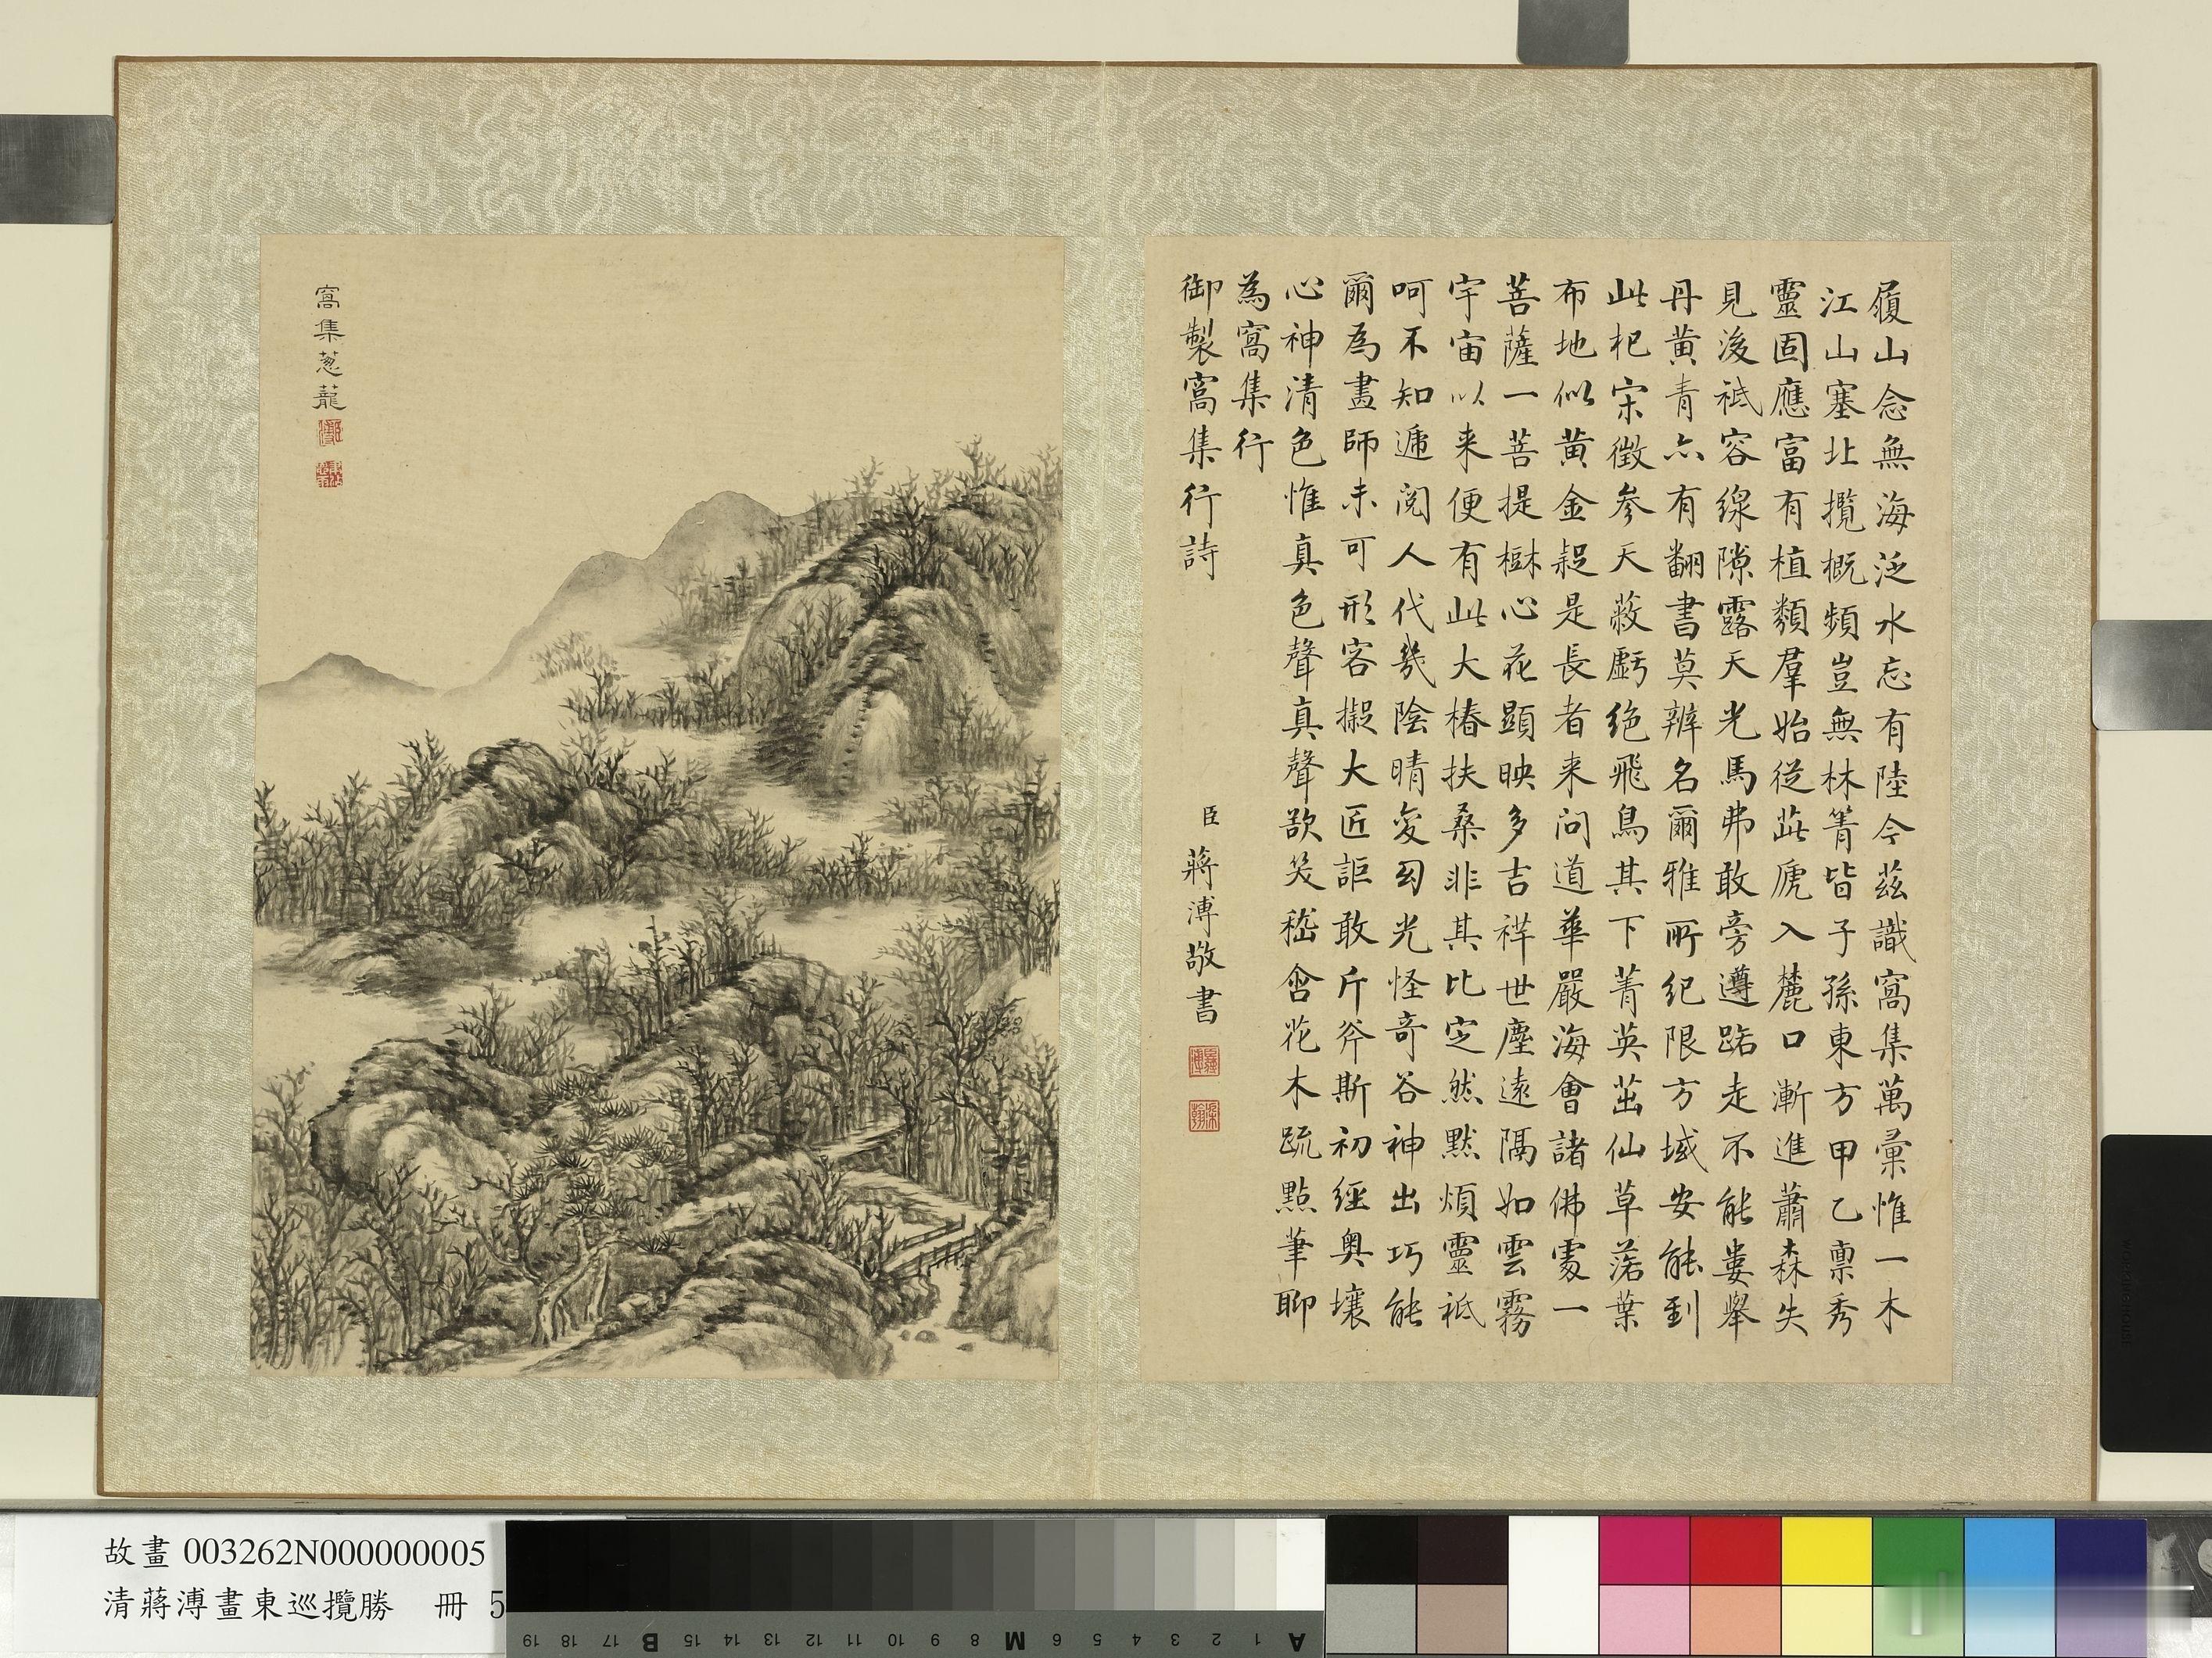 履山念無海泛水忘有陸今茲識窩集萬彙惟一木
江山塞北攬概頻豈無林箐皆子孫東方甲乙稟秀
靈固應富有植類羣始從茈虒入麓口漸進蕭森失
見後祗容線隙露天光馬弗敢旁遵踣走不能婁舉
丹黃青亦有翻書莫辨名爾雅所紀限方域安能到
此杞宋徵參天蔽虧絕飛鳥其下菁英茁仙草落葉
布地似黃金疑是長者来问道華嚴海會諸佛處一
菩薩一菩提樹心花顯映多吉祥世塵遠隔如雲霧
宇宙以来便有此大椿扶桑非其比定然默煩靈祗
呵不知遞閱人代幾陰晴変幻光怪竒谷神出巧能
爾為畫師未可形容擬大匠詎敢斤斧斯初經奧壤
心神清色惟真色聲真聲欲笑嵇含花木疏點筆聊
為窩集行
御製窩集行詩
臣蔣溥敬書
窩集蔥蘢
故畫003262N000000005
清蔣溥畫東巡攬勝 冊 5
A 1 2 3 4 5 6 M 8 9 10 11 12 13 14 15 B 17 18 19